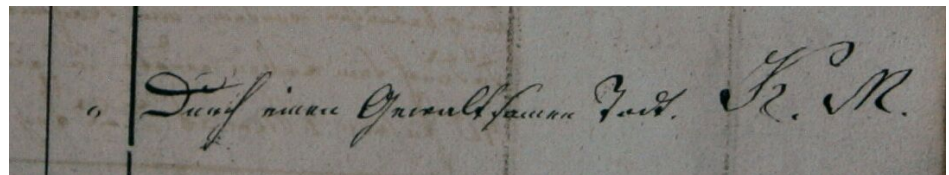 " Durch einen Gewaltsamen Todt. K. M.